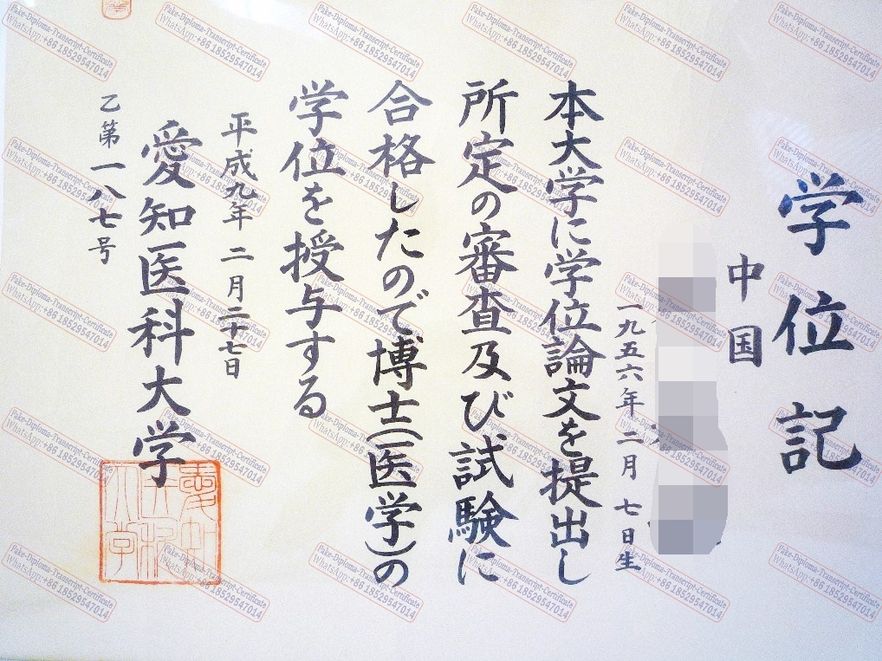 学位記
中国
一九五六年二月七日生
本大学に学位論文を提出し
所定の審査及び試験に
合格したので博士(医学)の
学位を授与する
平成九年二月二十七日
愛知医科大学
乙第一八七号
Fake-Diploma-Transcript-Certificate
WhatsApp:+86 18529547014